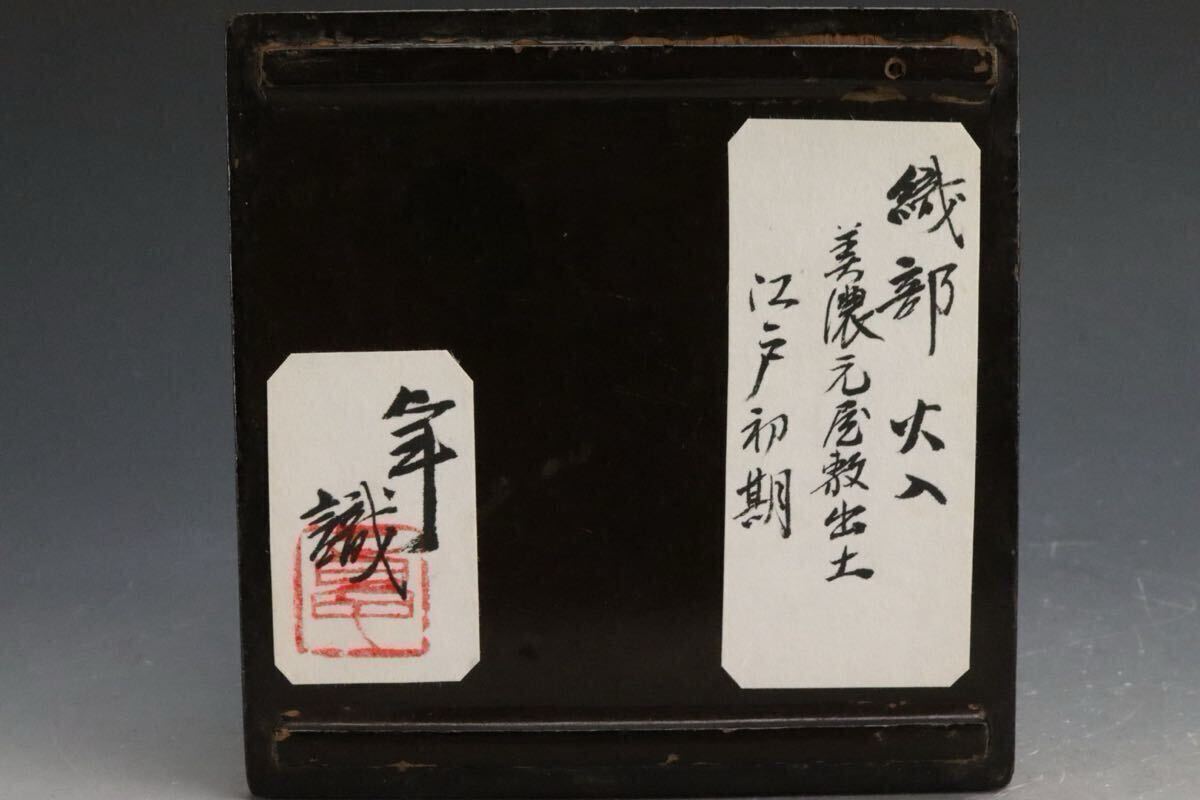 織部 火入
美濃元屋敷出土
江戸初期
識